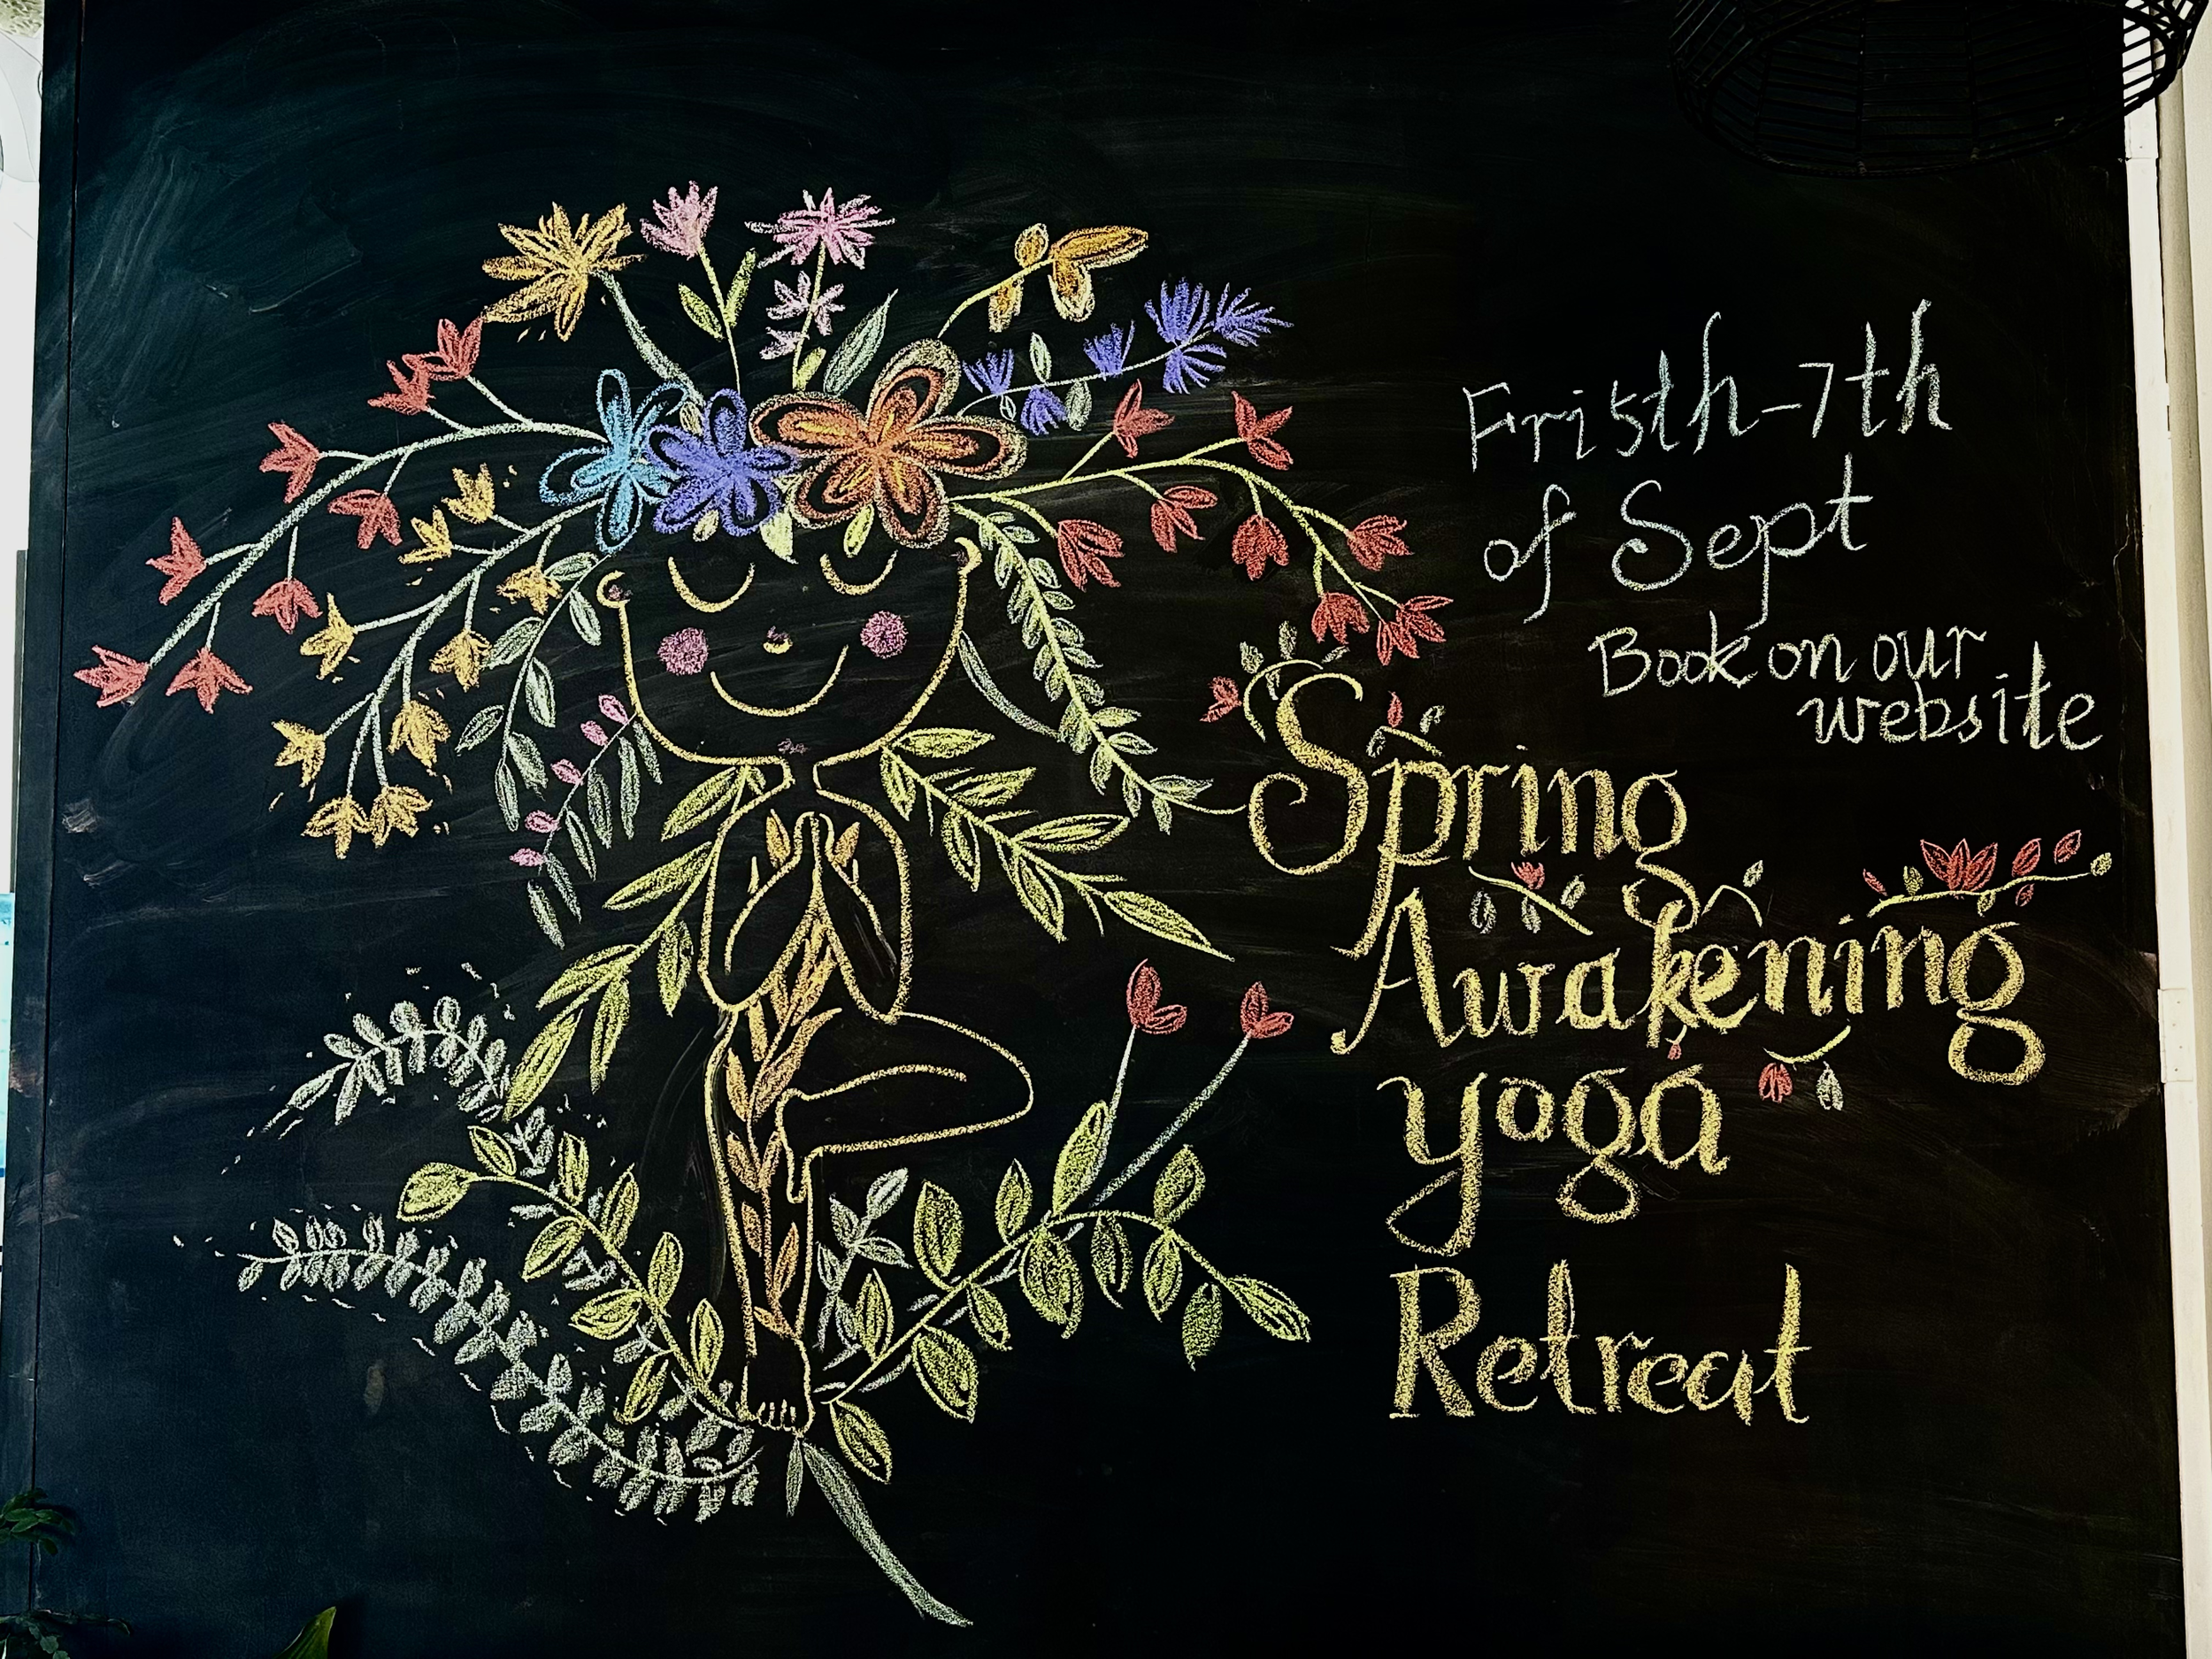 Fri 5th-7th
of Sept
Book on our
website
Spring
Awakening
yoga
Retreat